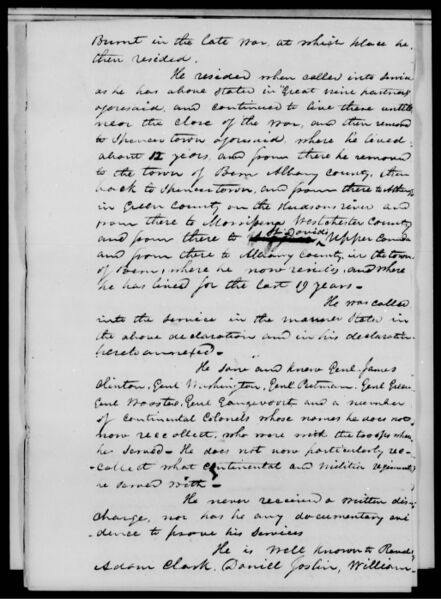 Burnt in the late war, at which place he
then resided.
He resided when called into service
as he has above stated in Great nine partners
aforesaid, and continued to live there until
near the close of the war, and then removed
to Spencertown aforesaid, where he lived
about 12 years, and from there he removed
to the town of Bern Albany County, then
back to Spencertown, and from there to Athens
in Green County on the Hudsons river and
from there to Morrisena Westchester County
and from there to St Davids Upper Canada
and from there to Albany County, in the town
of Bern, where he now resides, and where
he has lived for the last 19 years.
He was called
into the service in the manner stated in
the above declaration and in his declaration
hereto annexed.
He saw and knew Genl. James
Clinton, Genl Washington, Genl Putman, Genl Green
Genl Wooster, Genl Gangevoort and a number
of continental Colonels whose names he does not
now reccollect, who were with the troops when
he served. He does not now particularly re-
collect what continental and militia regiments
he served with.
He never received a written dis-
charge, nor has he any documentary evi
dence to prove his services
He is well known to
Adam Clark, Daniel Joslin, William